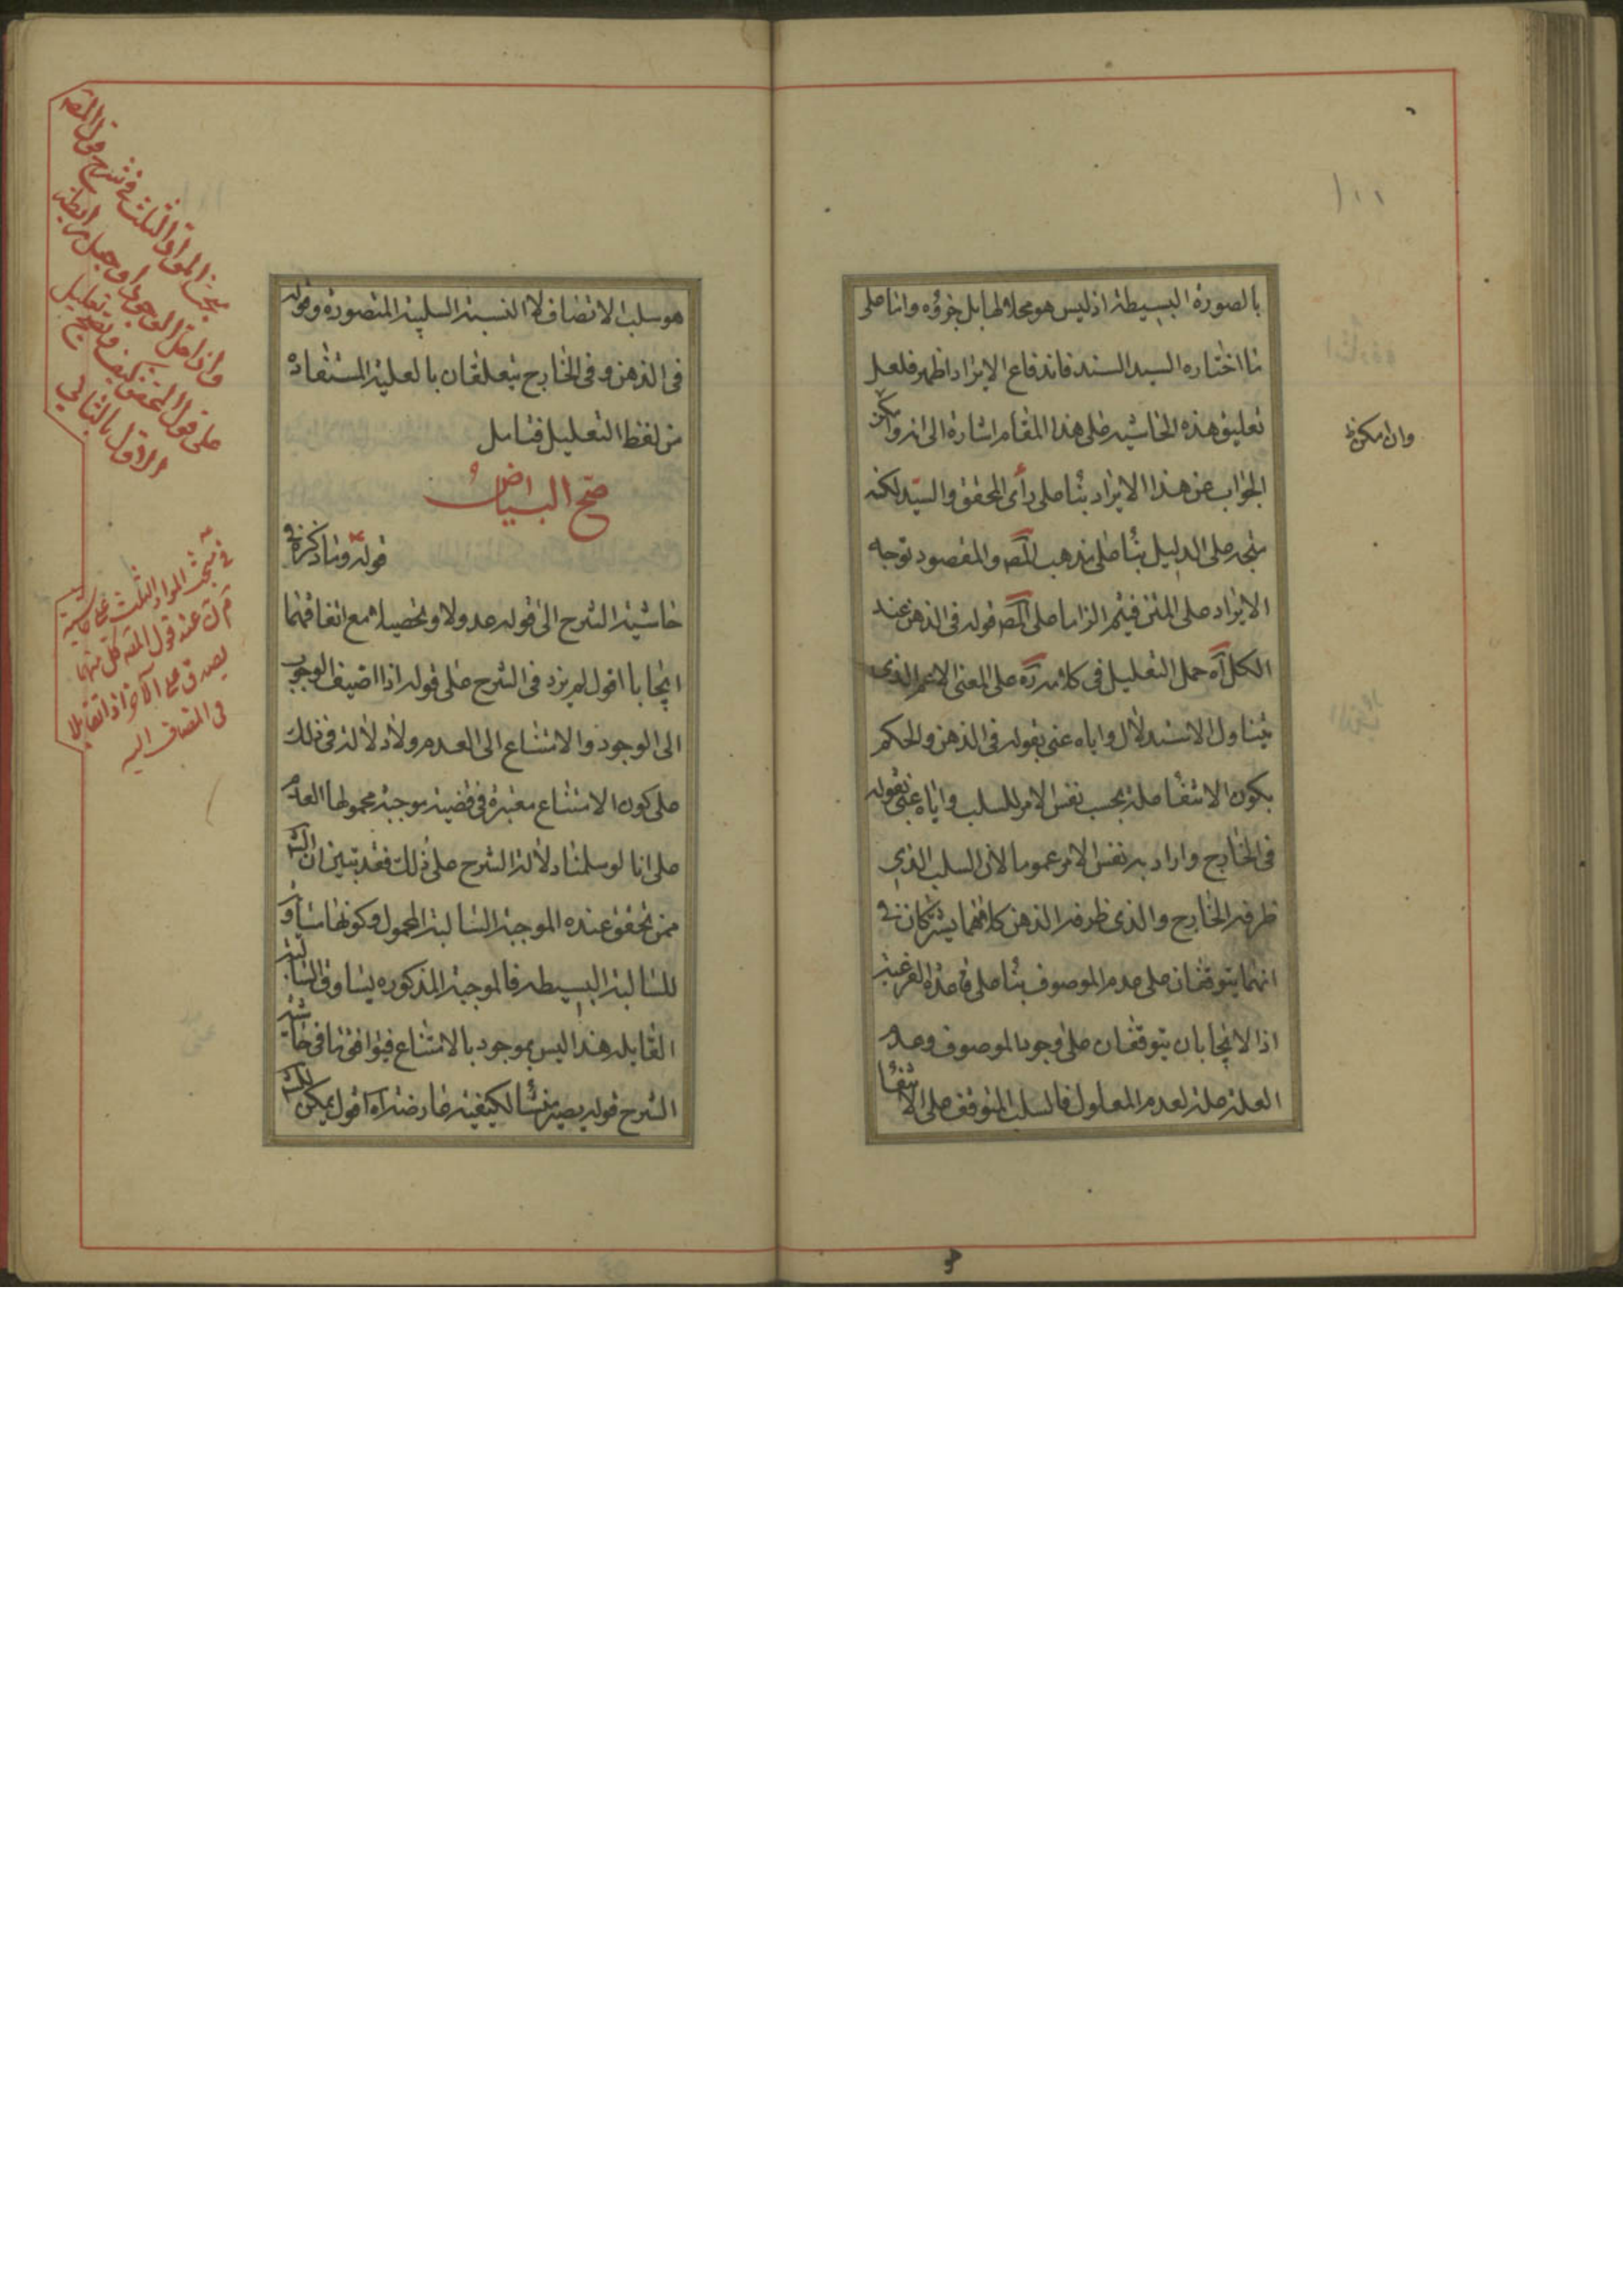 بالصورة البسيطة اذ ليس هو محلا لها بل جزؤه واما على
ما اختاره السيد السند فاندفاع الايراد اظهر فلعل
تعليق هذه الحاشيه على هذا المقام اشارة الى انه وان امكن
الجواب عن هذا الايراد بناء على رأى المحقق والسيد لكنه
متجه على الدليل بناء على مذهب المصـ والمقصود توجه
الايراد على المتن فيتم الزاما على المصـ قوله فى الذهن عند
الكل آه حمل التعليل فى كلامه ره على المعنى الاعم الذى
يتناول الاستدلال واياه عنى بقوله فى الذهن والحكم
بكون الانتفاء علة بحسب نفس الامر للسلب واياه عنى بقوله
فى الخارج واراد به نفس الامر عموما لان السلب الذى
ظرفه الخارج والذى ظرفه الذهن كلاهما يشتركان فى
انهما يتوقفان على عدم الموصوف بناء على قاعدة الفرعية
اذ الايجابان يتوقفان على وجود الموصوف وعدم
العلة علة لعدم المعلول فالسلب المتوقف على الانتفاء
١٠٠
وان امكن ظ
هو سلب الاتصاف لا النسبة السلبية المتصورة وقوله
فى الذهن وفى الخارج يتعلقان بالعلية المستفادة
من لفظ التعليل فتامل
صح البياض
قوله وما ذكره فى
حاشية الشرح الى قوله عدولا وتحصيلا مع اتفاقهما
ايجابا اقول لم يزد فى الشرح على قوله اذا اضيف الوجوب
الى الوجود والامتناع الى العدم ولا دلالة فى ذلك
على كون الامتناع معتبرة فى قضية موجبة محمولها العدم
على انا لو سلمنا دلالة الشرح على ذلك فقد تبين ان الشـ
ممن تحقق عنده الموجبة السالبة المحمول وكونها مساوقة
للسالبة البسيطه فالموجبة المذكوره يساوق السالبة
القابله هذا ليس بموجود بالامتناع فيوافق ما فى حاشية
الشرح قوله يصير منشأ لكيفية عارضة آه اقول يمكن
مبحث المواد الثلث فى شرح قول المصـ
واذا حمل الوجود او جعل رابطة
على قول المحقق كيف ويصح تعليل
الاول بالثانى
فى مبحث المواد الثلث على حاشية
عند قول المصـ كل منهما
يصدق على الآخر اذا تقابلا
فى المضاف اليه